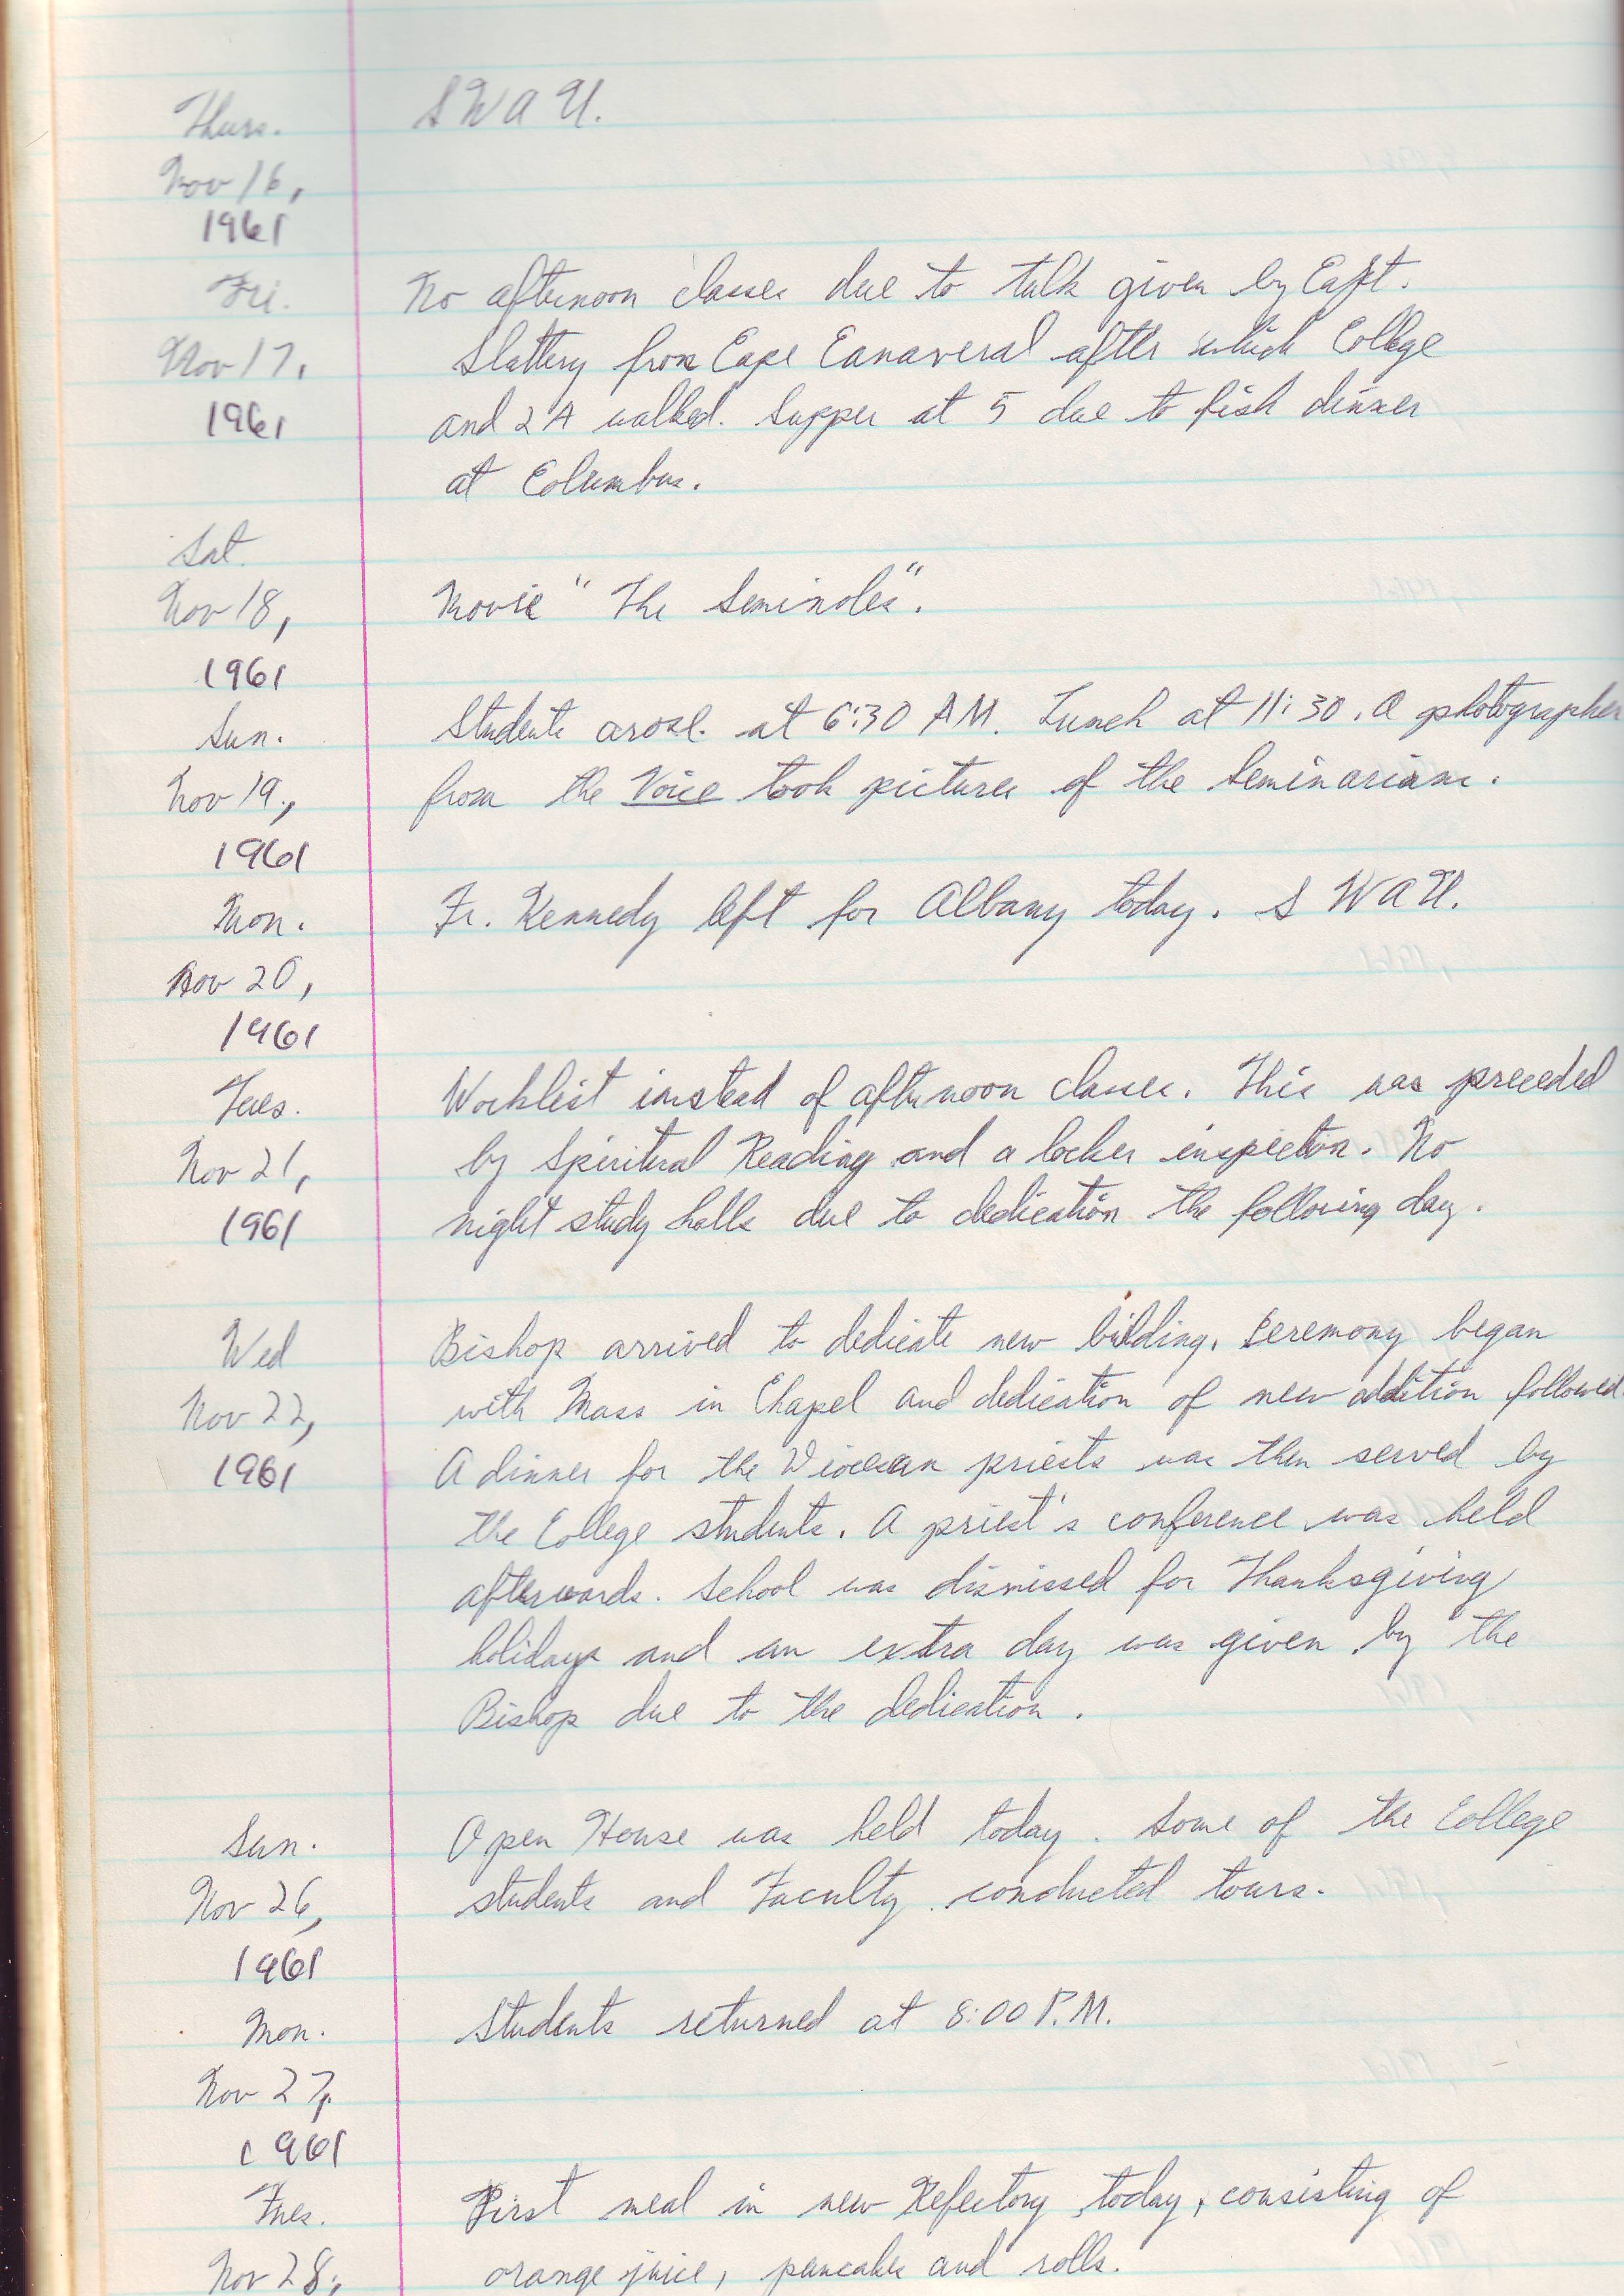 Thurs. S W A U.
Nov 16,
1961
Fri. No afternoon classes due to talk given by Capt.
Nov 17, Slattery from Cape Canaveral after which College
1961 and 2A walked. Supper at 5 due to fish dinner
at Columbus.
Sat.
Nov 18, Movie "The Seminoles".
1961
Sun. Students arose at 6:30 AM. Lunch at 11:30. A photographer
Nov 19, from the Voice took pictures of the Seminarians.
1961
Mon. Fr. Kennedy left for Albany today. S W A U.
Nov 20,
1961
Tues. Worklist instead of afternoon classes. This was preceded
Nov 21, by Spiritual Reading and a locker inspection. No
1961 night study halls due to dedication the following day.
Wed Bishop arrived to dedicate new building. Ceremony began
Nov 22, with Mass in Chapel and dedication of new addition followed
1961 A dinner for the Diocesan priests was then served by
the College students. A priest's conference was held
afterwards. School was dismissed for Thanksgiving
holidays and an extra day was given by the
Bishop due to the dedication.
Sun. Open House was held today. Some of the College
Nov 26, students and Faculty conducted tours.
1961
Mon. Students returned at 8:00 P.M.
Nov 27,
1961
Tues. First meal in new Refectory today, consisting of
Nov 28, orange juice, pancakes and rolls.